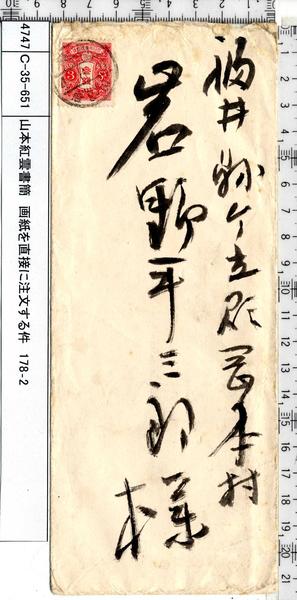 福井縣今立郡岡本村
岩野平三郎
様
4747 C-35-651 山本紅雲書簡 画紙を直接に注文する件 178-2